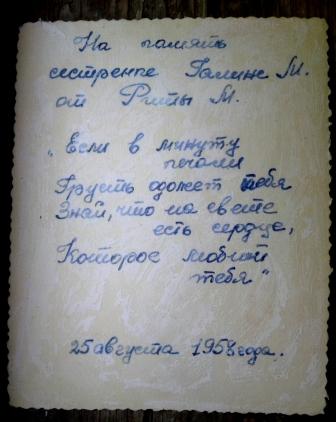 На память
сестренке Галине М.
от Риты М.
„Если в минуту
печали
Грусть одолет тебя
Знай, что на свете
есть сердце,
Которое любит
тебя"
25 августа 1958 года.